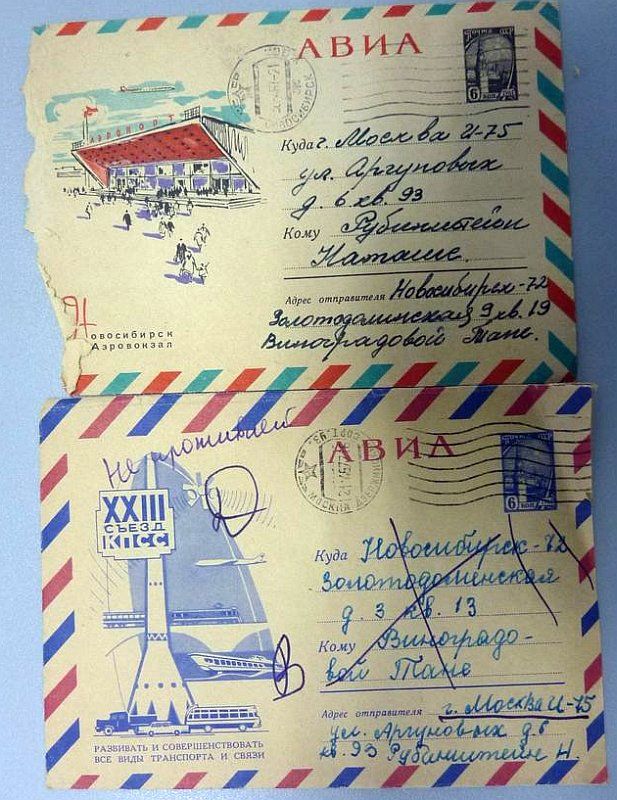 АВИА
ПОЧТА СССР
6 КОП
АЭРОПОРТ
НОВОСИБИРСК
Куда г. Москва И-75
ул. Аргуновых
д. 6 кв. 93
Кому Рубинштейн
Наташе.
Адрес отправителя Новосибирск-72
Золотодолинская 9 кв. 19
Виноградовой Тане.
Новосибирск
Аэровокзал
Не проживает
АВИА
ПОЧТА СССР
6 КОП
МОСКВА
XXIII
СЪЕЗД
КПСС
Д
В
Куда Новосибирск-72
Золотодоменская
д. 3 кв. 13
Кому Виноградо-
вой Тане
Адрес отправителя г. Москва И-75
ул. Аргуновых д. 6
кв. 93 Рубинштейн Н.
РАЗВИВАТЬ И СОВЕРШЕНСТВОВАТЬ
ВСЕ ВИДЫ ТРАНСПОРТА И СВЯЗИ